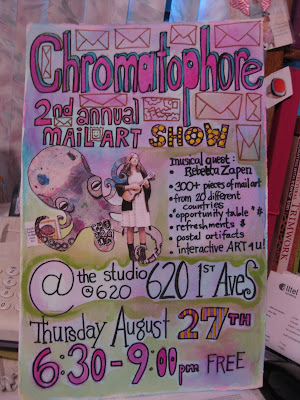 Chromatophore
2nd annual
MAIL ART SHOW
musical guest:
• Rebekka Zapen
• 300+ pieces of mail art
• from 20 different
countries
• opportunity table * #
• refreshments &
• postal artifacts
• interactive ART 4U!
@ the studio
@ 620
620 1st AVE S
Thursday August 27TH
6:30-9:00pm FREE
FRAMEWORK